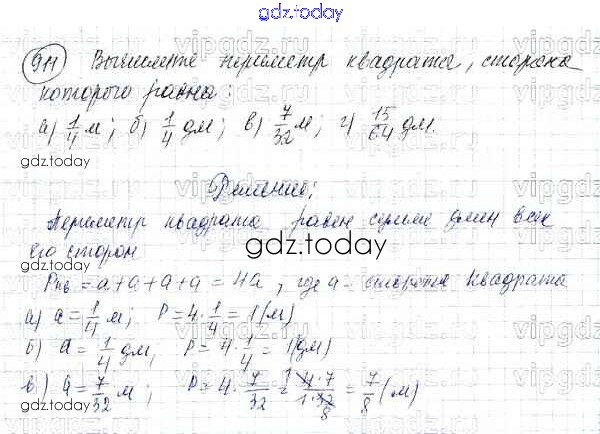 gdz.today
911 Вычислите периметр квадрата, сторона
которого равна:
а) 1/4 м; б) 1/4 дм; в) 7/32 м; г) 15/64 дм.
gdz.today
Решение:
Периметр квадрата равен сумме длин всех
его сторон
gdz.today
Pкв = a+a+a+a = 4a, где a - сторона квадрата
а) a = 1/4 м; P = 4 · 1/4 = 1 (м)
б) a = 1/4 дм, P = 4 · 1/4 = 1 (дм)
в) a = 7/32 м; P = 4 · 7/32 = 1 4 · 7 / 1 · 32 8 = 7/8 (м)
gdz.today